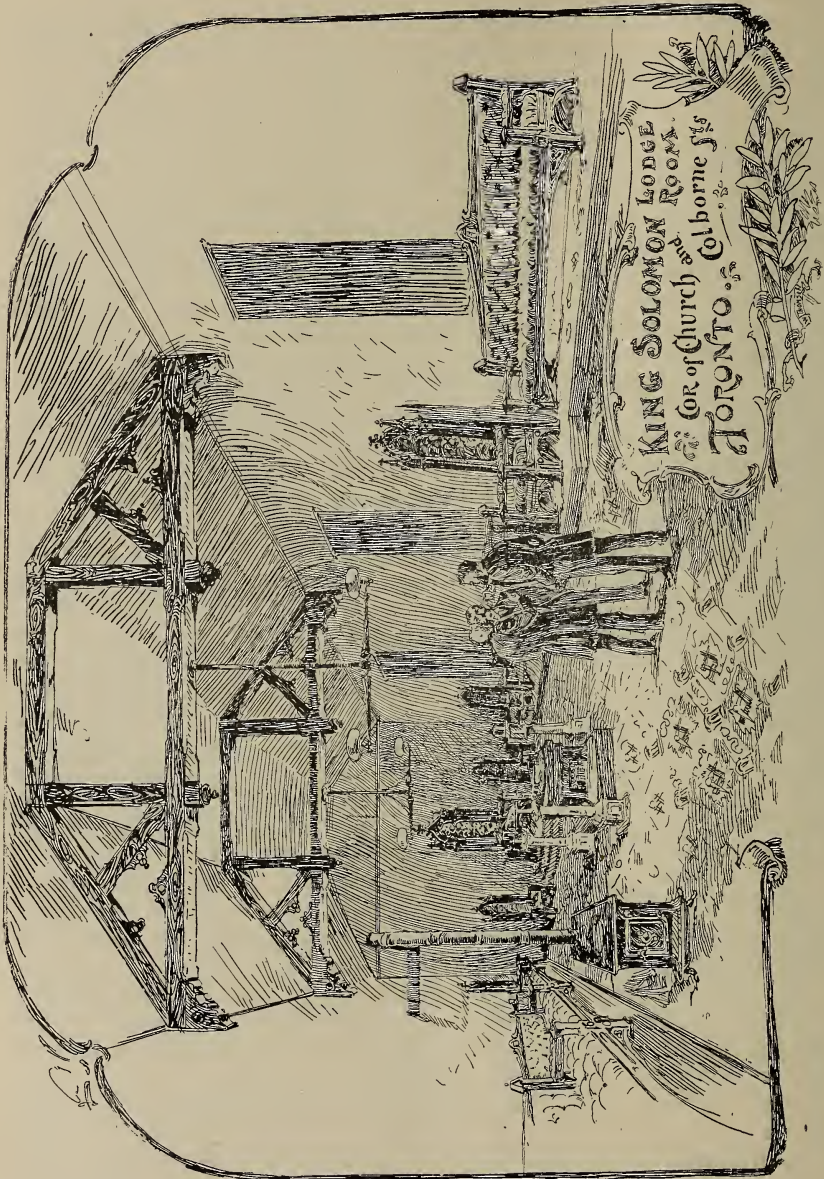 KING SOLOMON LODGE
ROOM.
COR of Church and
Colborne Sts
TORONTO.